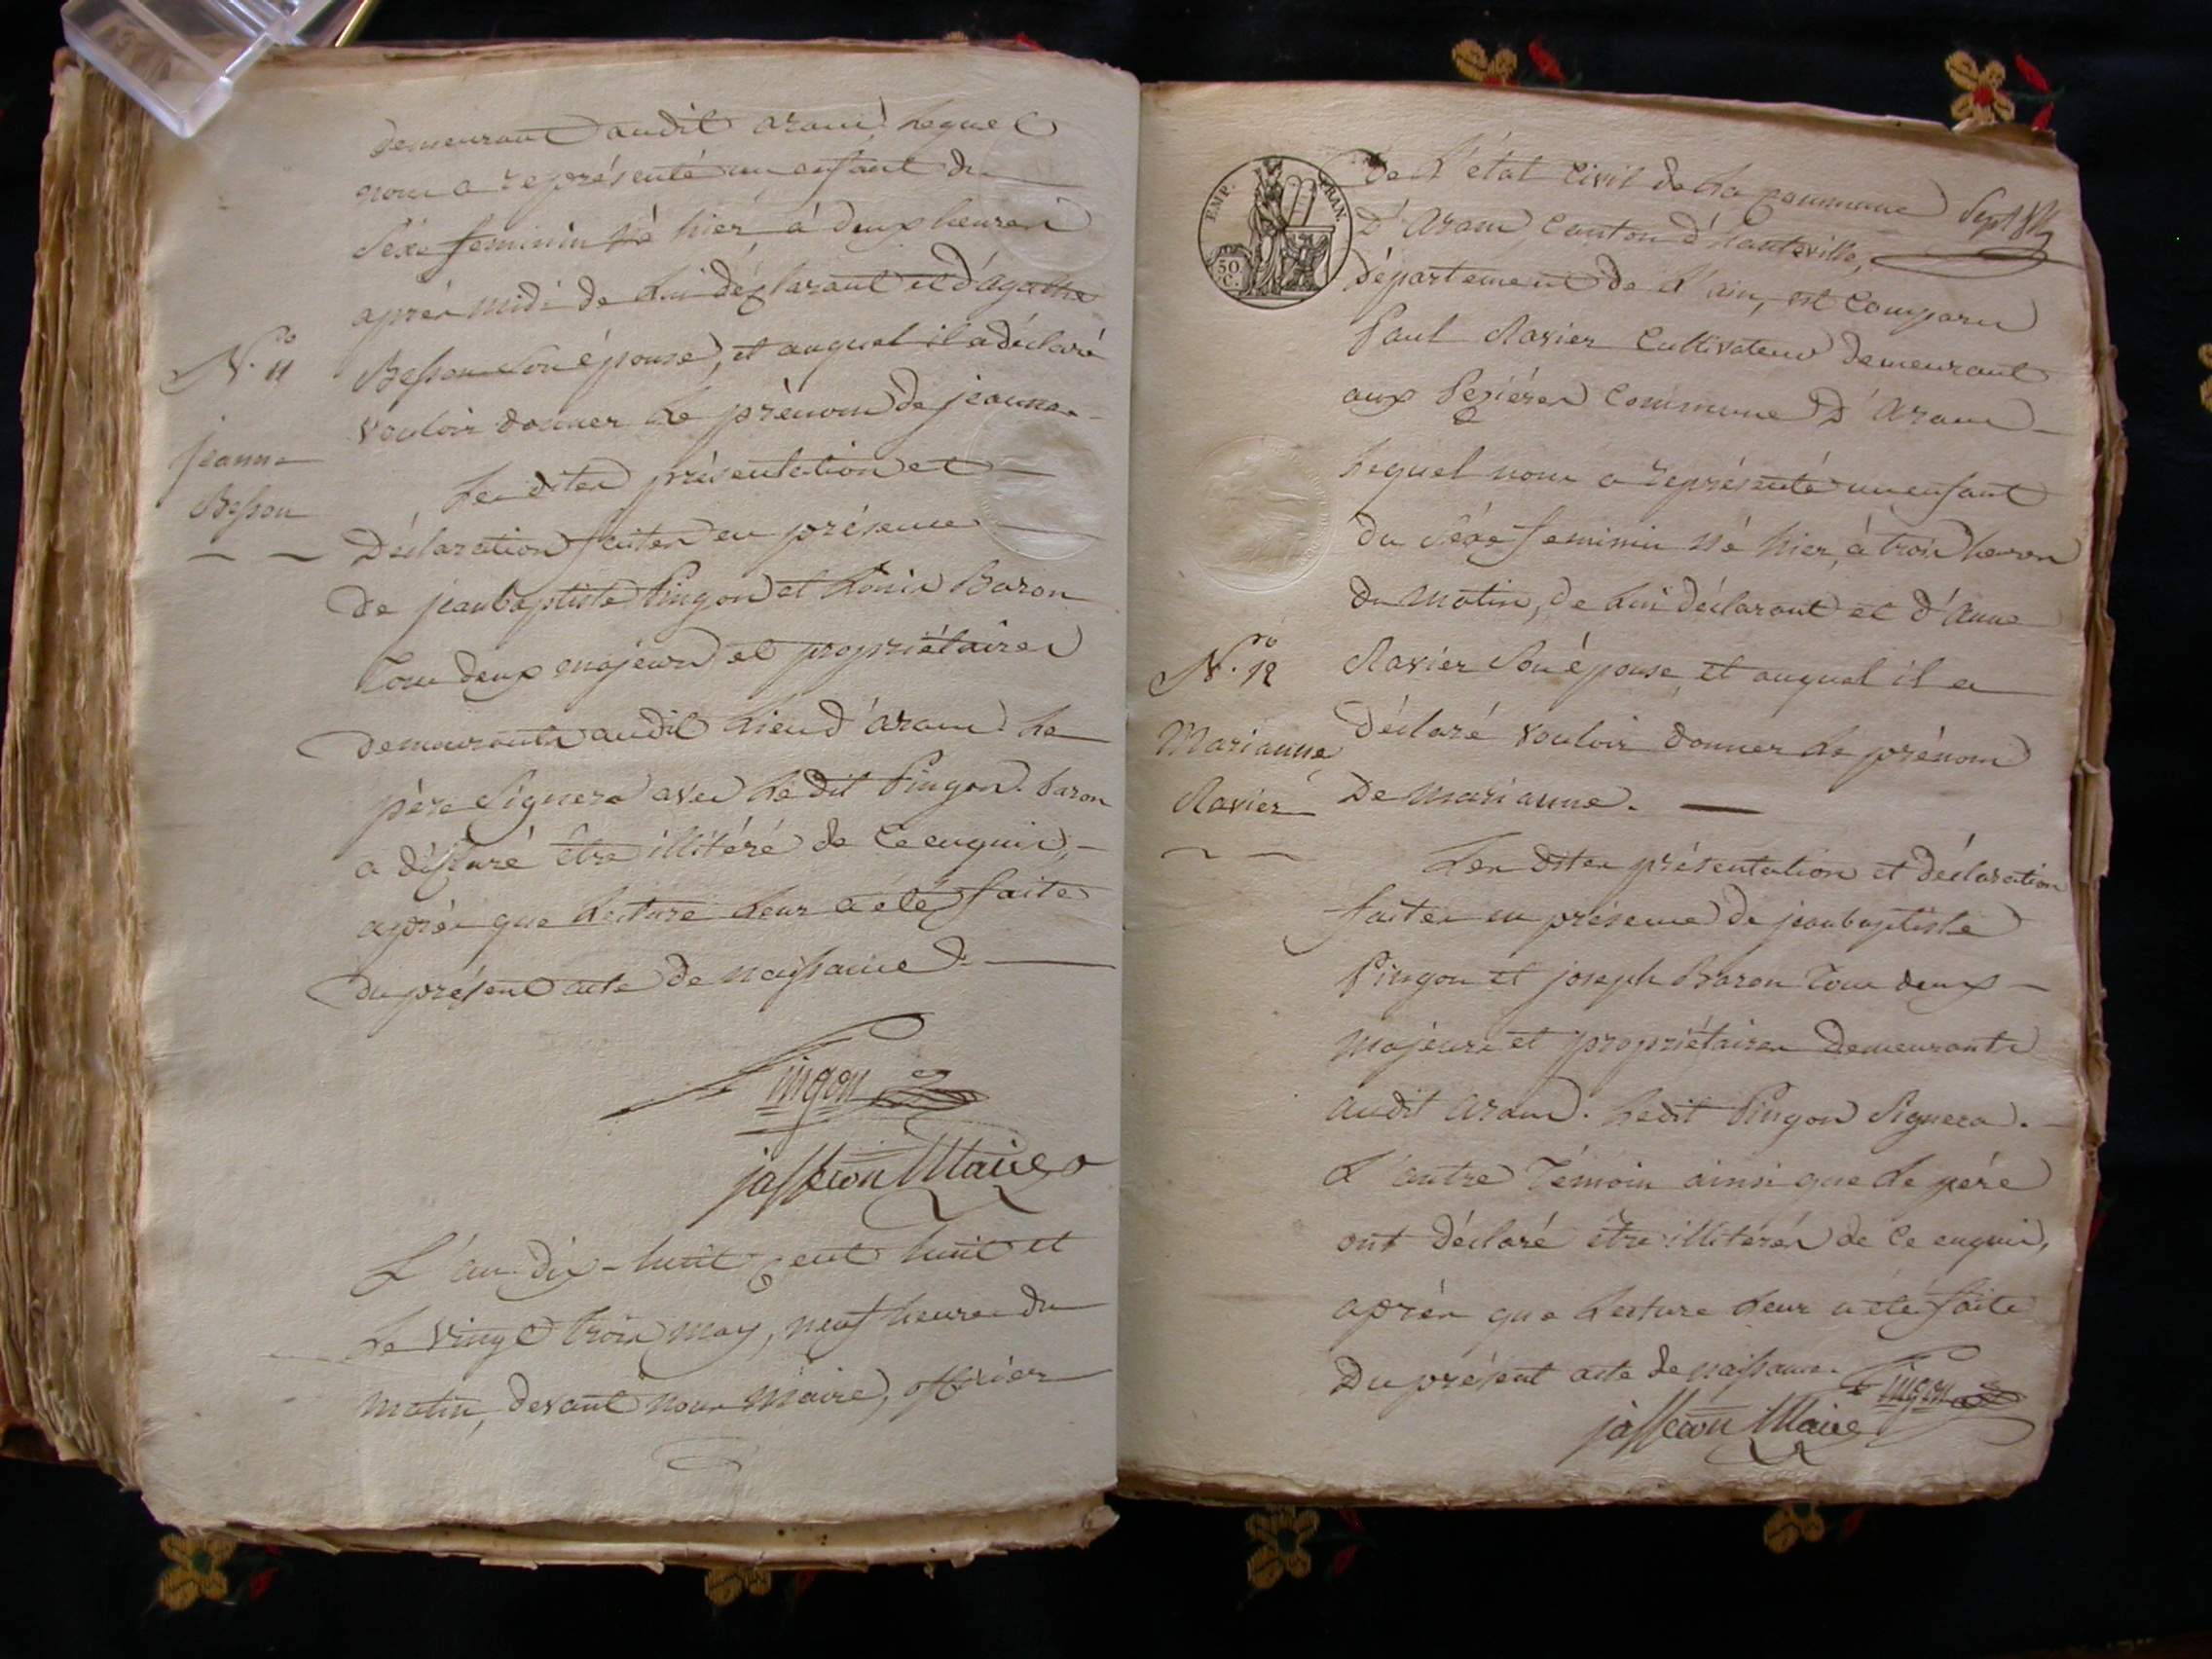 demeurant audit aranc, lequel
nous a représenté un enfant du
Séxe feminin né hier à deux heures
après midi de lui déclarant et d'agathe
Besson son épouse, et auquel il a déclaré
vouloir donner le prénom de jeanne.
N.ro 11
jeanne
Besson
Les dites présentation et
Déclaration faites en présence
de jeanbaptiste Pingon et Louis Baron
tous deux majeurs et propriétaires
demeurants audit lieu d'aranc. le
père Signera avec le dit Pingon. baron
a déclaré être illitéré de ce enquis,
après que lecture leur a été faite
du présent acte de naissance.
Pingon
jasseron Maire
L'an dix-huit cent huit et
le vingt trois may, neuf heures du
matin, devant nous maire, officier
EMP. FRAN.
50 C.
De l'état civil de la commune
D'Aranc, Canton d'hauteville,
département de l'ain, est comparu
Paul Ravier Cultivateur demeurant
aux Commune D'Aranc
lequel nous a représenté un enfant
du Séxe feminin né hier, à trois heures
du matin, de lui déclarant et d'anne
Ravier son épouse, et auquel il a
déclaré vouloir donner le prénom
De marianne.
N.ro 12
Marianne
Ravier
Les dites présentation et déclaration
faites en présence de jeanbaptiste
Pingon et joseph Baron tous deux
majeurs et propriétaires demeurants
audit aranc. ledit Pingon Signera.
L'autre témoin ainsi que le père
ont déclaré être illitérés de ce enquis,
après que lecture leur a été faite
Du présent acte de naissance.
Pingon
jasseron Maire